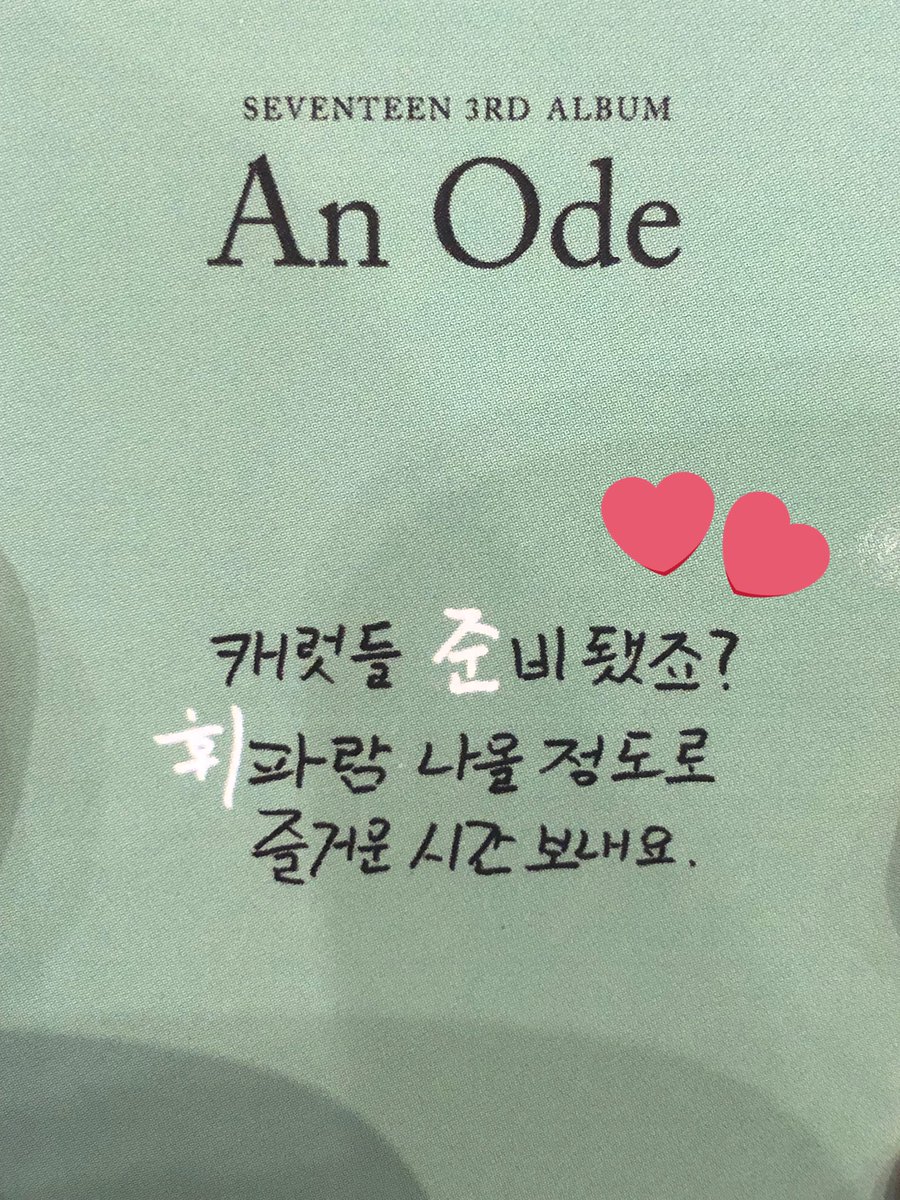 SEVENTEEN 3RD ALBUM
An Ode
캐럿들 준비됐죠?
휘파람 나올 정도로
즐거운 시간 보내요.